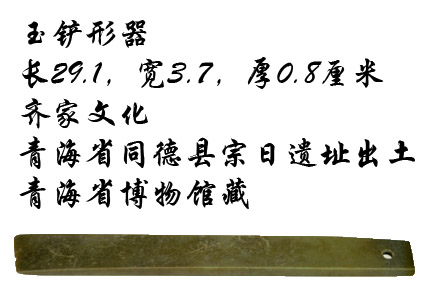 玉铲形器
长29.1，宽3.7，厚0.8厘米
齐家文化
青海省同德县宗日遗址出土
青海省博物馆藏